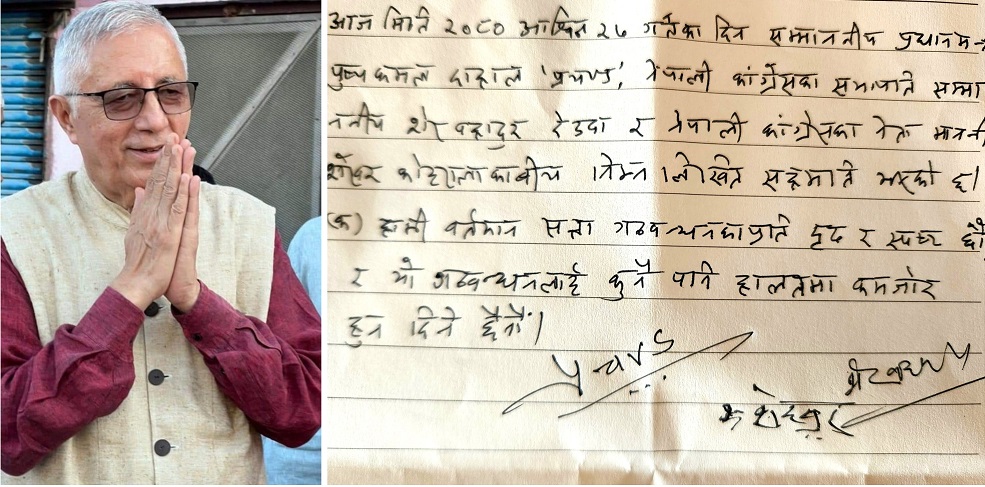 आज मिति २०८० आश्विन २७ गतेका दिन सम्माननीय प्रधानमन्
पुष्पकमल दाहाल 'प्रचण्ड', नेपाली कांग्रेसका सभापति सम्मा
ननीय शेर बहादुर देउवा र नेपाली कांग्रेसका नेता मानन
शेखर कोइरालाका बीच निम्न लिखित सहमति भएको छ।
(क) हामी वर्तमान सत्ता गठबन्धनका प्रति दृढ र स्पष्ट छौं
र यो गठबन्धनलाई कुनै पनि हालतमा कमजोर
हुन दिने छैनौं।